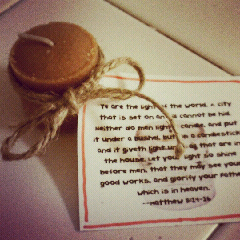 Ye are the light of the world. A city
that is set on an cannot be hid.
Neither do men light candle, and put
it under a bushel, but on a candlestick
and it giveth light that are in
the house. Let your light so shine
before men, that they may see your
good works, and glorify your Father
which is in heaven.
-Matthew 5:14-16